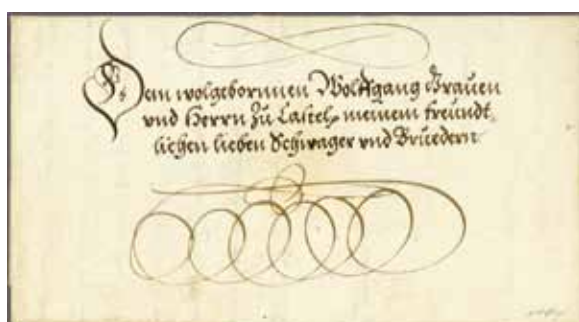 Dem wolgebornnen Wolffgang Grauen
vnd Herrn zu Castel, meinem freundt,
lichen lieben Schwager vnd Bruedern